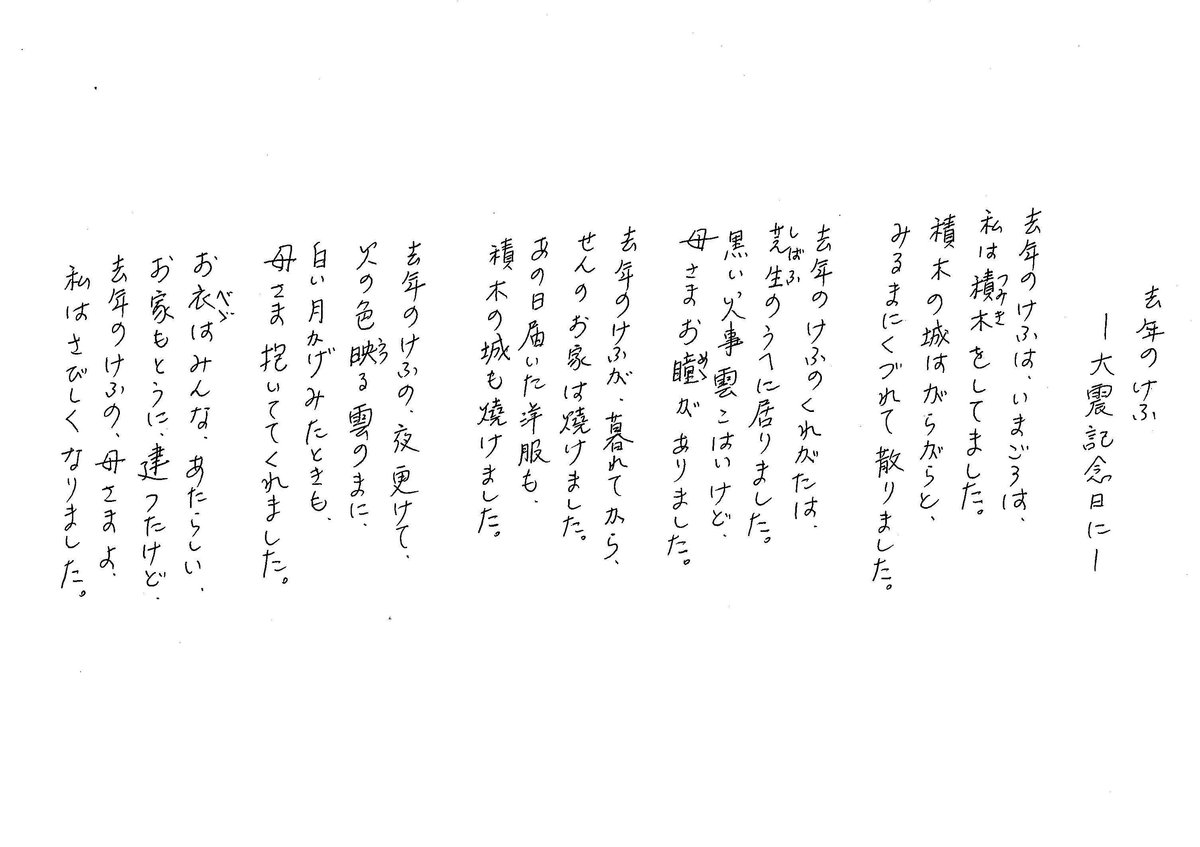 去年のけふ
―大震記念日に―
去年のけふは、いまごろは、
私は積木をしてました。
積木の城はがらがらと、
みるまにくづれて散りました。
去年のけふのくれがたは、
芝生のうへに居りました。
黒い火事雲こはいけど、
母さまお瞳がありました。
去年のけふが、暮れてから、
せんのお家は燒けました。
あの日届いた洋服も、
積木の城も燒けました。
去年のけふの、夜更けて、
火の色映る雲のまに、
白い月かげみたときも、
母さま抱いててくれました。
お衣はみんな、あたらしい、
お家もとうに、建つたけど、
去年のけふの、母さまよ、
私はさびしくなりました。